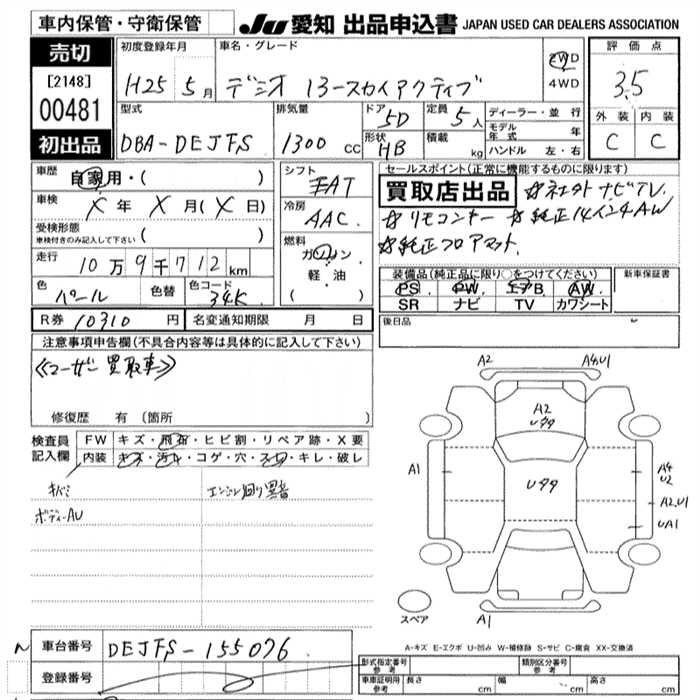 車内保管・守衛保管
JU 愛知 出品申込書 JAPAN USED CAR DEALERS ASSOCIATION
売切
[2148]
00481
初出品
初度登録年月
H25 5月
車名・グレード
デミオ 13-スカイアクティブ
2WD
4WD
評価点
3.5
外装 内装
C C
型式
DBA-DEJFS
排気量
1300 cc
ドア
5D
形状
HB
定員
5人
積載
kg
ディーラー・並行
モデル年式 年
ハンドル 左・右
車歴
自家用・( )
車検
X年 X月(X日)
受検形態
車検付きのみ記入して下さい ( )
走行
10万9千712km
色
パール
色替
色コード
34K
シフト
FAT
冷房
AAC
燃料
ガソリン
軽・油
( )
セールスポイント(正常に機能するものに限ります)
買取店出品 ☆社外ナビTV
☆リモコンキー ☆純正14インチAW
☆純正フロアマット
装備品(純正品に限り○をつけてください)
PS PW エアB AW
SR ナビ TV カワシート
新車保証書
後日品
R券 10310円
名変通知期限 月 日
注意事項申告欄(不具合内容等は具体的に記入して下さい)
《ユーザー買取車》
修復歴 有 (箇所 )
検査員記入欄
FW キズ・飛石・ヒビ割・リペア跡・X要
内装 キズ・汚れ・コゲ・穴・スレ・キレ・破レ
キバミ
エンジン廻り異音
ボディーAU
A2
A4,U1
A2
Uタタ
A1
Uタタ
A4
U2
A2,U1
UA1
スペア
A1
A-キズ E-エクボ U-凹み W-補修跡 S-サビ C-腐食 XX-交換済
車台番号 DEJFS-155076
登録番号
型式指定番号
参考
類別区分番号
参考
車車証明用
参考
長さ cm 幅 cm 高さ cm